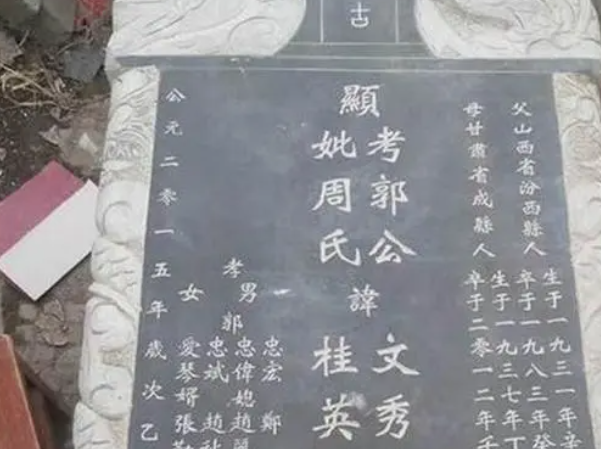 古
父山西省汾西縣人
生于一九三一年辛
卒于一九八三年癸
母甘肅省成縣人
生于一九三七年丁
卒于二零一二年壬
顯
考郭公
妣周氏
諱
文秀
桂英
孝男郭
忠宏 鄭
忠偉媳趙
忠斌 趙秋
女愛琴婿張
公元二零一五年歲次乙